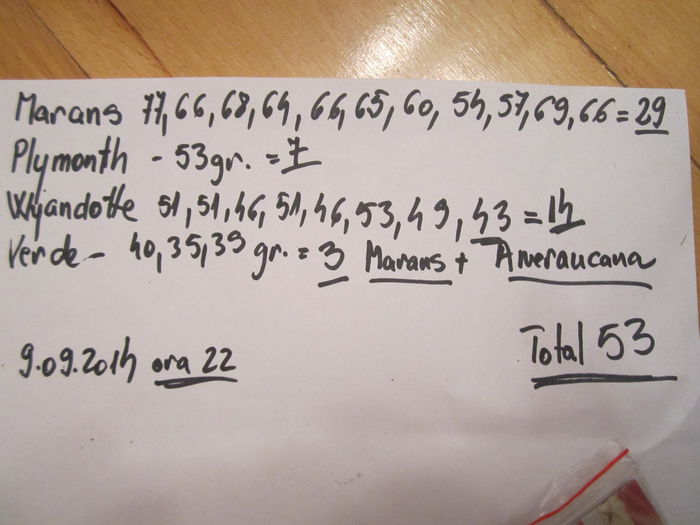 Marans 77,66,68,64,66,65,60,54,57,69,66=29
Plymonth - 53gr. =7
Whyandotte 51,51,46,51,46,53,49,43=14
Verde - 40,35,39 gr. = 3 Marans + Ameraucana
Total 53
9.09.2014 ora 22